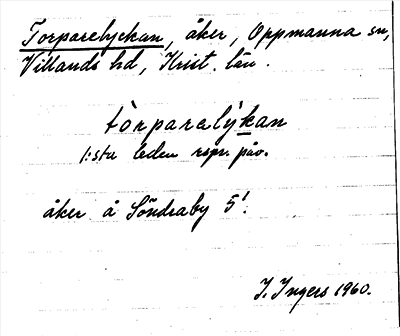 Torparelyckan, åker, Oppmanna sn,
Villands hd, Krist. län.
tòrparalýkan
1:sta leden uspr. påv.
åker å Söndraby 5¹.
I. Ingers 1960.